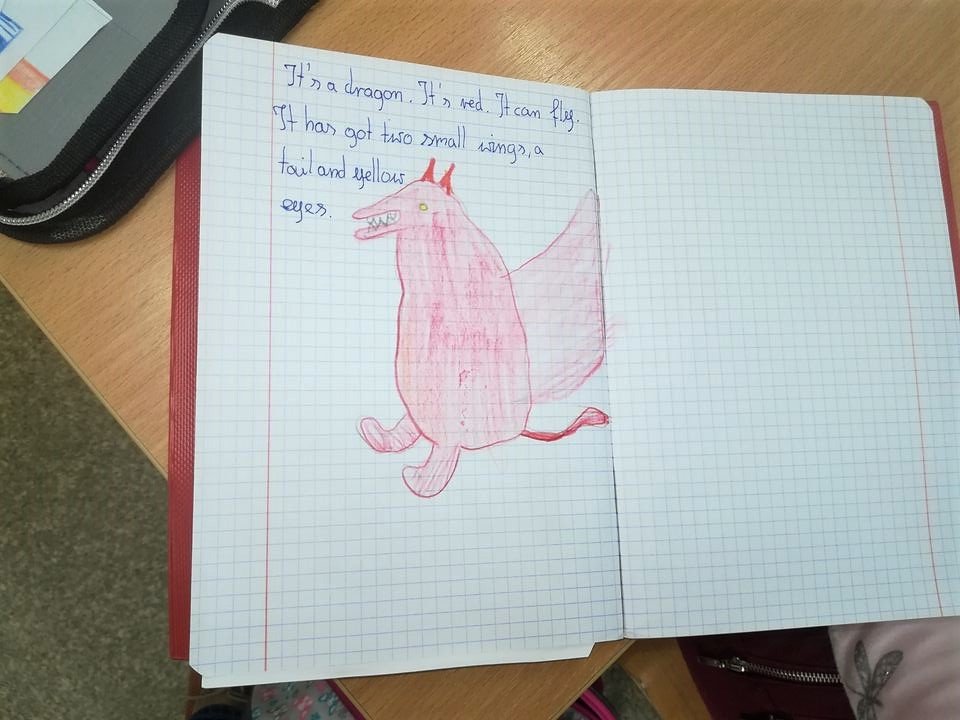 It's a dragon. It's red. It can fly.
It has got two small wings, a
tail and yellow
eyes.